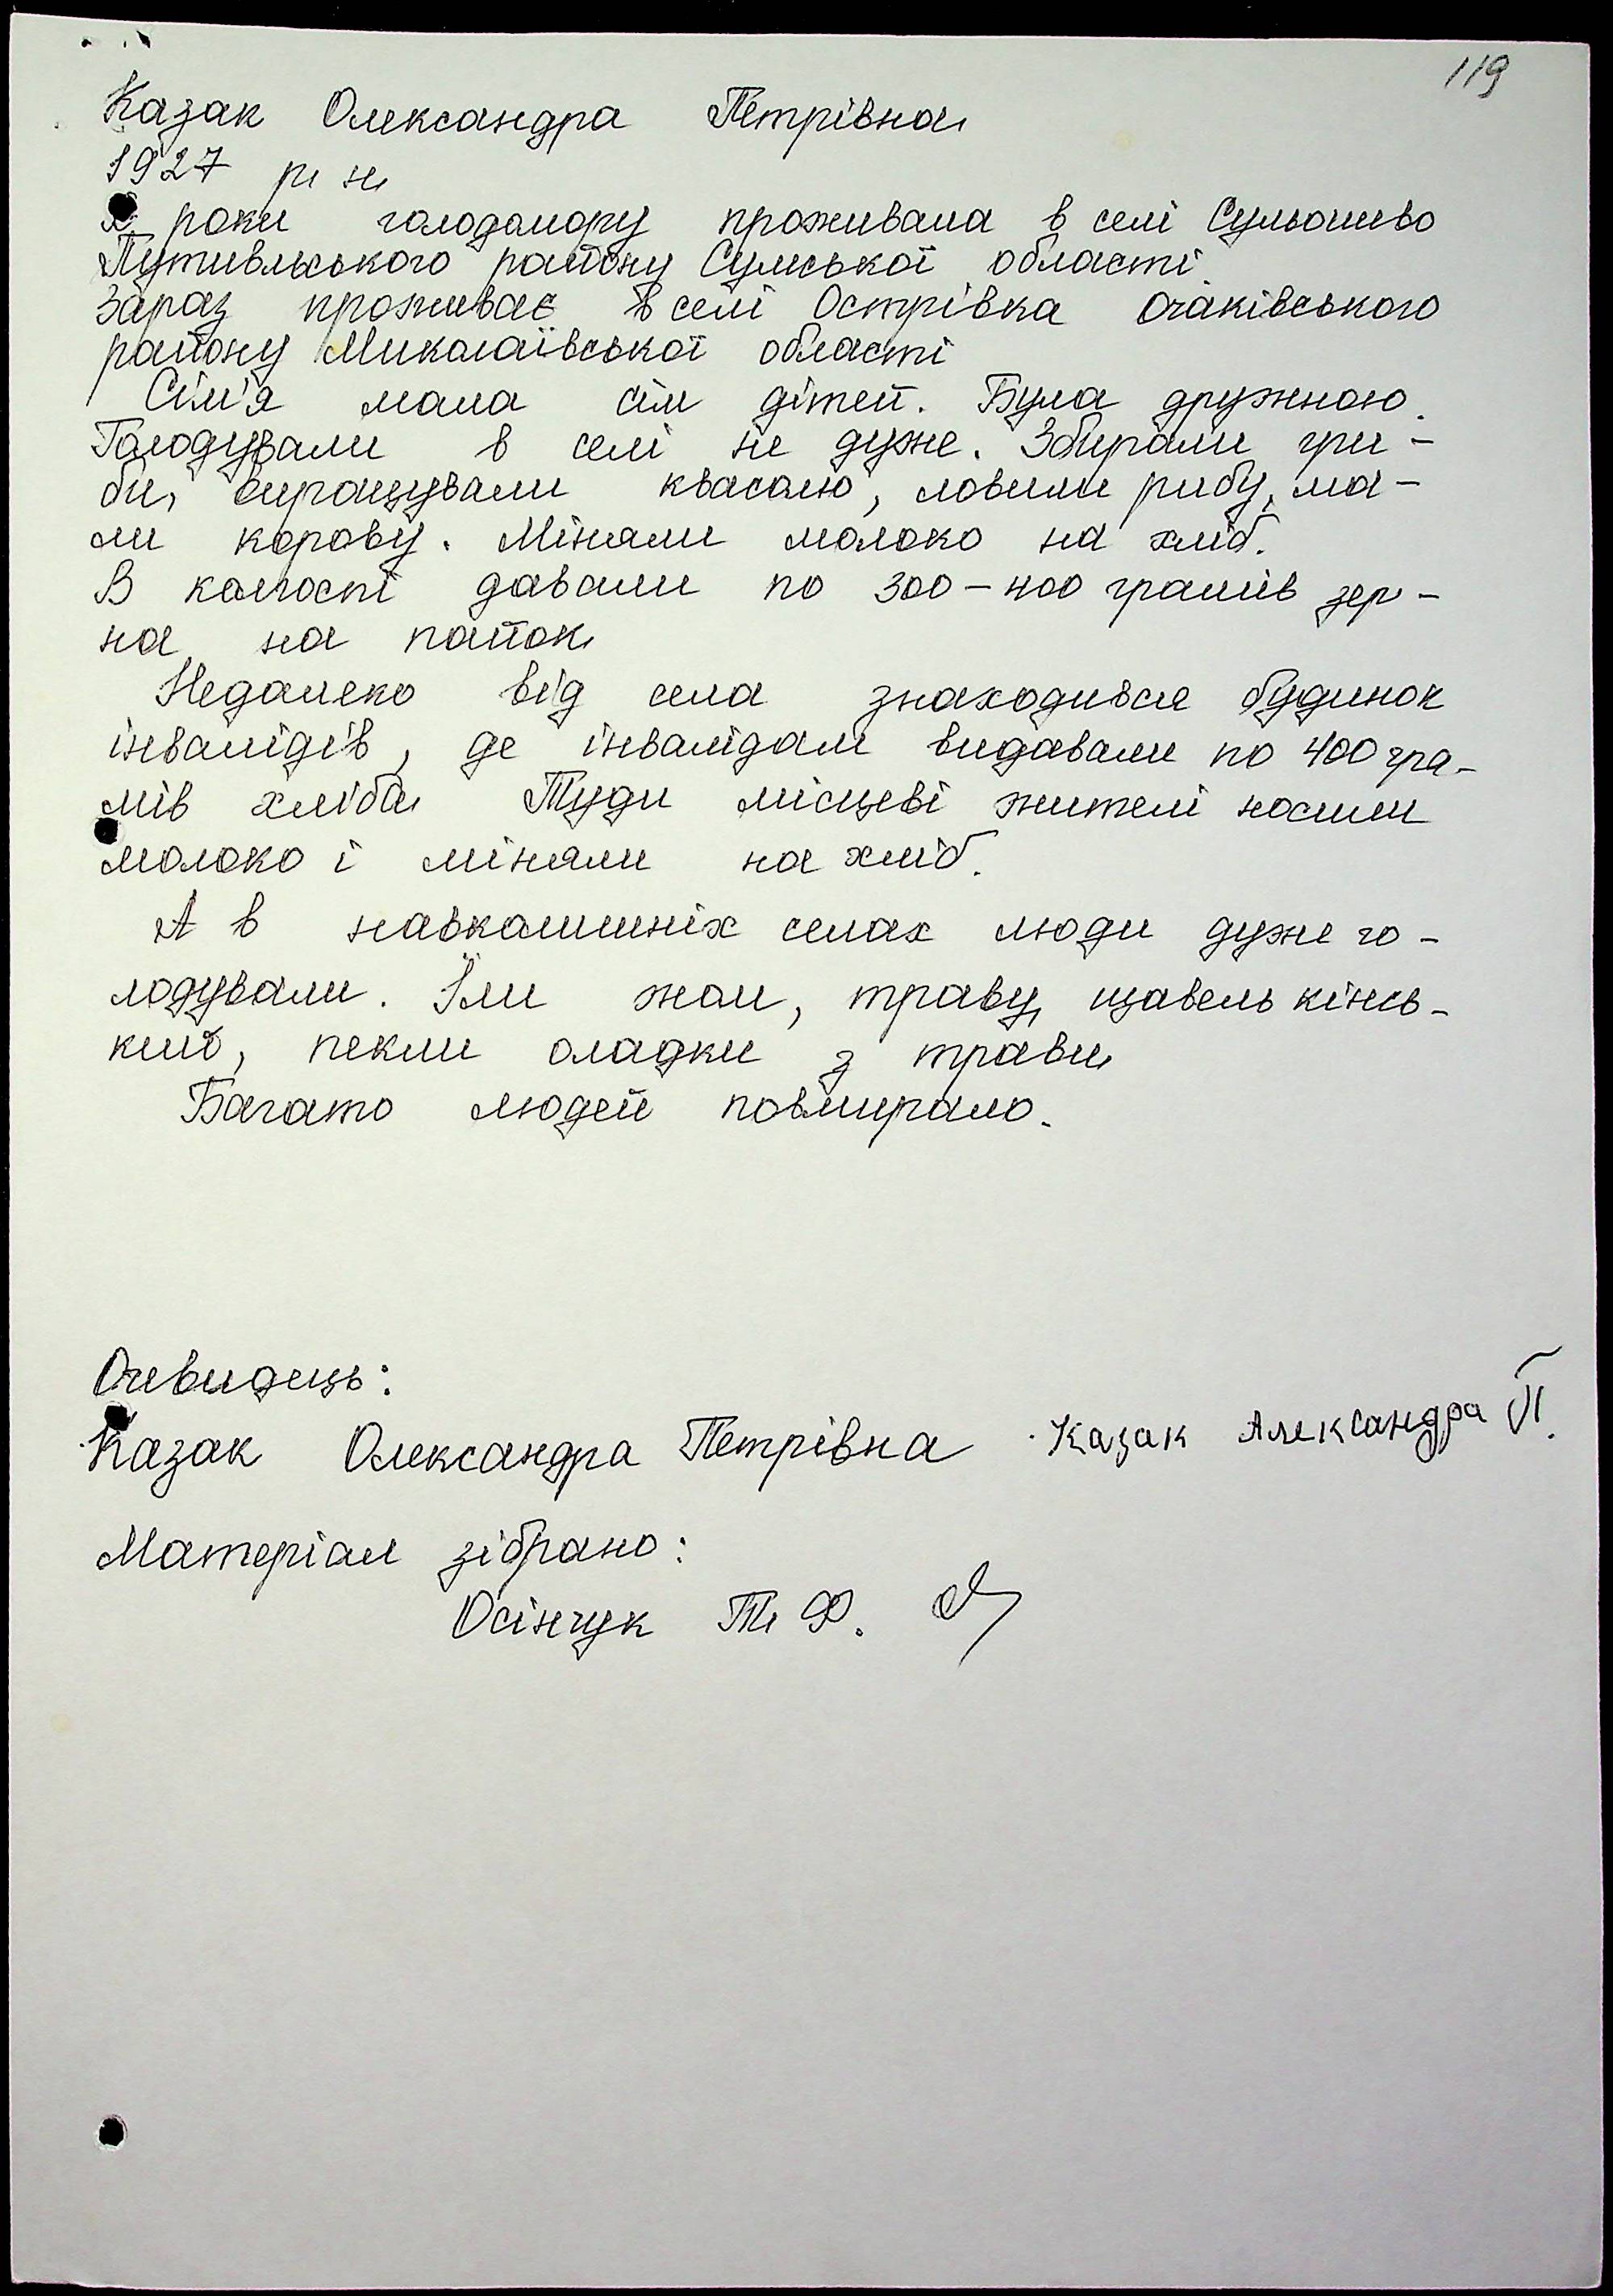 119
Казак Олександра Петрівна,
1927 р. н.
В роки голодомору проживала в селі Сульошиво
Путивльського району Сумської області
Зараз проживає в селі Острівка Очаківського
району Миколаївської області
Сім'я мала сім дітей. Була дружною.
Голодували в селі не дуже. Збирали гри-
би, вирощували квасолю, ловили рибу, ма-
ли корову. Міняли молоко на хліб.
В колгоспі давали по 300-400 грамів зер-
на на пайок.
Недалеко від села знаходився будинок
інвалідів, де інвалідам видавали по 400 гра-
мів хліба. Туди місцеві жителі носили
молоко і міняли на хліб.
А в навколишніх селах люди дуже го-
лодували. Їли жом, траву, щавель кінсь-
кий, пекли оладки з трави.
Багато людей повмирало.
Очевидець:
Казак Олександра Петрівна Казак Александра П.
Матеріал зібрано:
Осінчук Т. Ф.